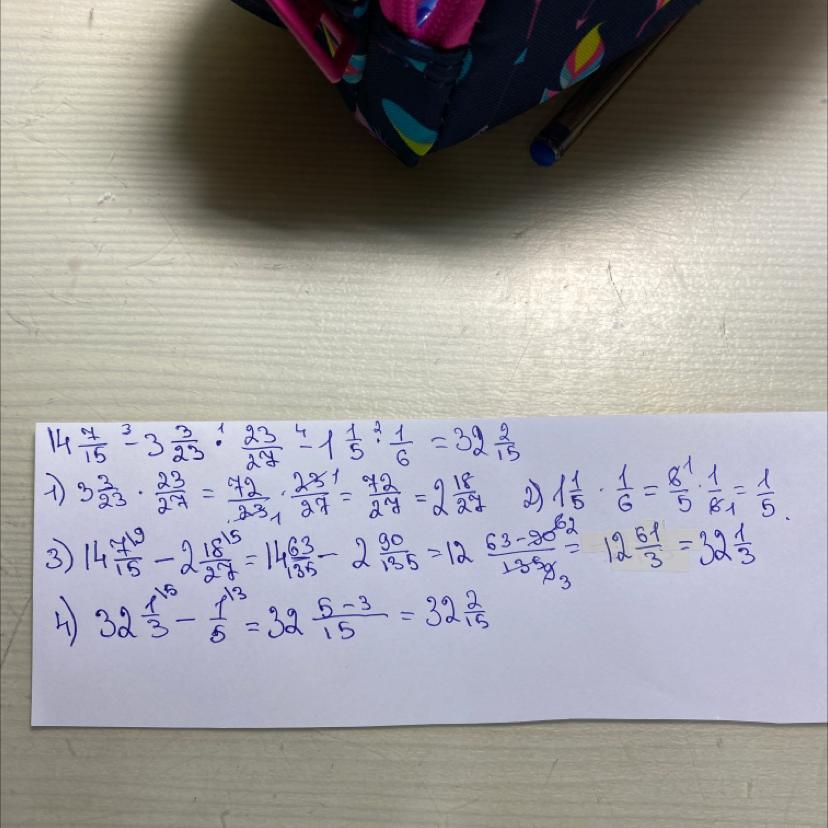 14 7/15 ³- 3 3/23 ·¹ 23/27 ⁴- 1 1/5 ·² 1/6 = 32 2/15
1) 3 3/23 · 23/27 = 72/23 1 · 23 1/27 = 72/27 = 2 18/27 2) 1 1/5 · 1/6 = 6 1/5 · 1/6 1 = 1/5.
3) 14 7\9/15 - 2 18\5/27 = 14 63/135 - 2 90/135 = 12 = 12 61/3 = 32 1/3
4) 32 1\5/3 - 1\3/5 = 32 5-3/15 = 32 2/15